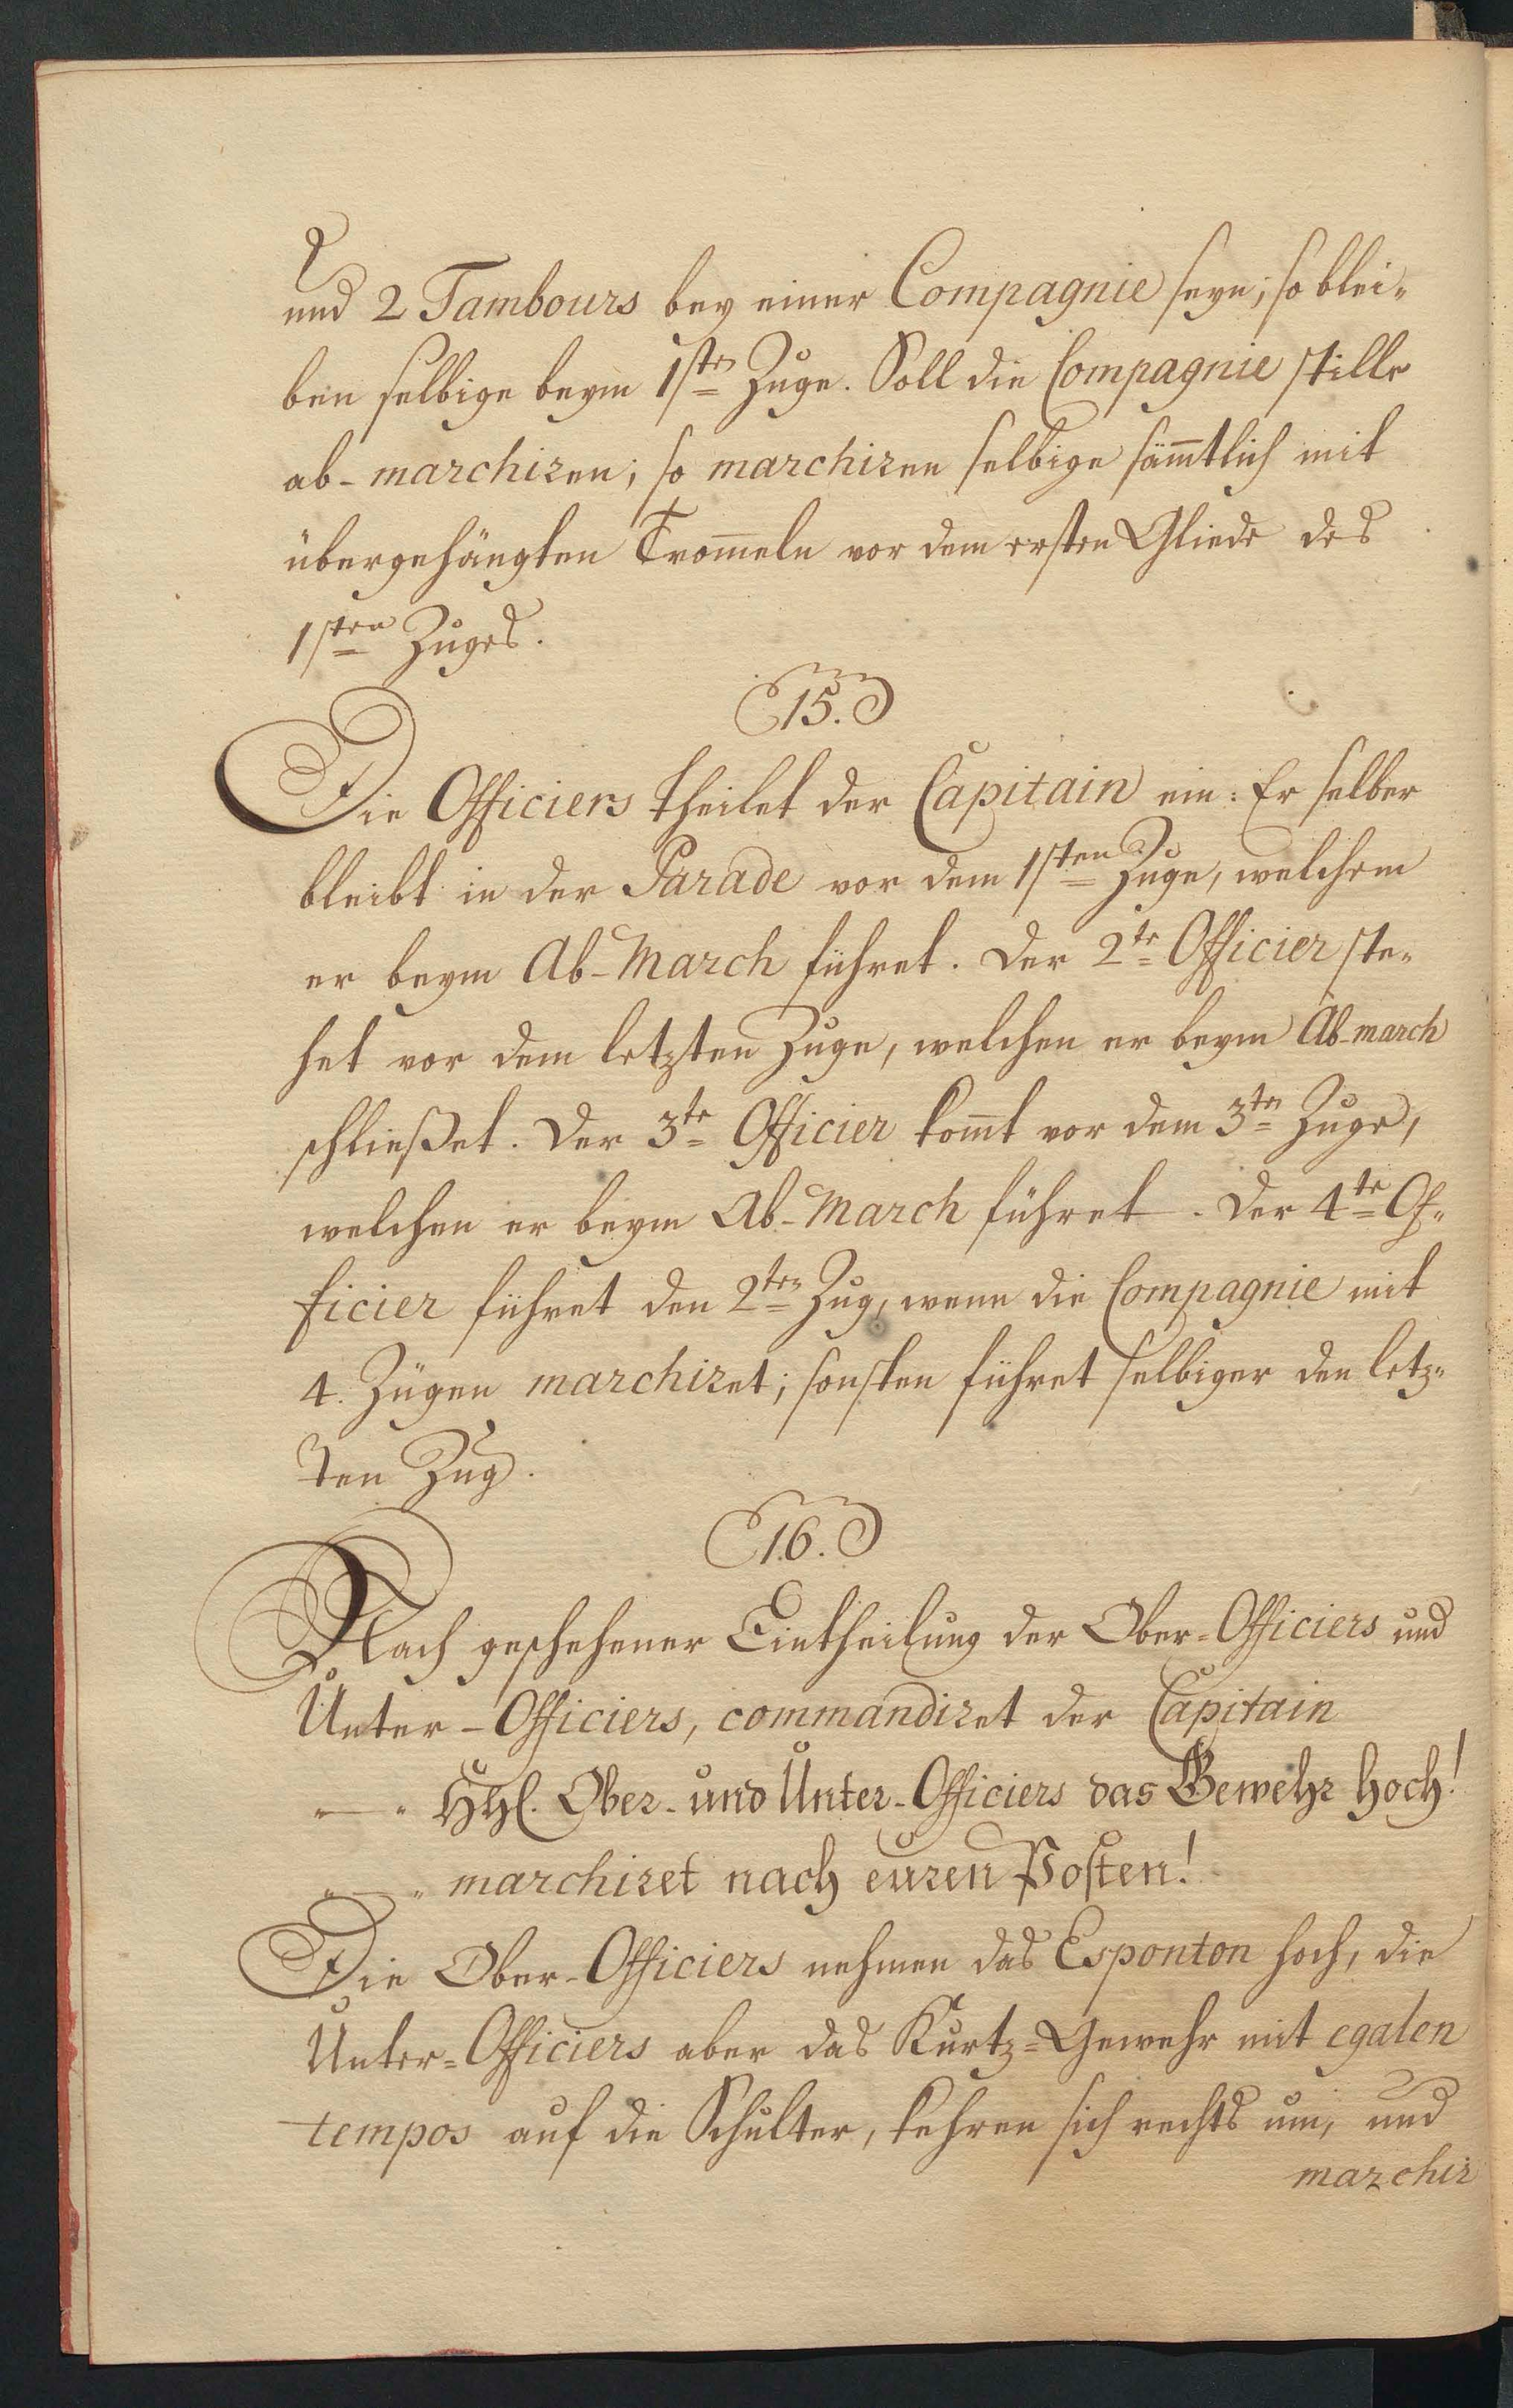 und 2 Tambours bey einer Compagnie seyn; so blei-
ben selbige beym 1sten Zuge. Soll die Compagnie stille
ab-marchiren; so marchiren selbige sämtlich mit
übergehängten Tromeln vor dem ersten Gliede des
1sten Zuges.
15.
Die Officiers theilet der Capitain ein: Er selber
bleibt in der Parade vor dem 1sten Zuge, welchem
er beym Ab-March führet. Der 2te Officier ste-
het vor dem letzten Zuge, welchen er beym Ab-march
schließet. Der 3te Officier komt vor dem 3ten Zuge,
welchen er beym Ab-March führet. Der 4te Of-
ficier führet den 2ten Zug, wenn die Compagnie mit
4. Zügen marchiret; sonsten führet selbiger den letz-
ten Zug.
16.
Nach geschehener Eintheilung der Ober-Officiers und
Unter-Officiers, commandiret der Capitain
Ober- und Unter-Officiers das Gewehr hoch!
marchiret nach euren Posten!
Die Ober-Officiers nehmen das Esponton hoch, die
Unter-Officiers aber das Kurtz-Gewehr mit egalen
tempos auf die Schulter, kehren sich rechts um, und
marchir